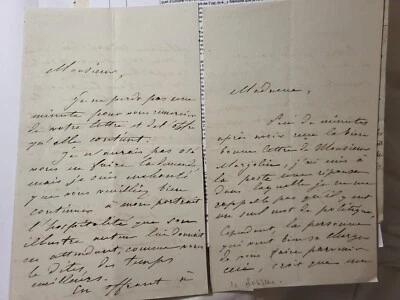 Monsieur,
Je ne perds pas une
minute pour vous remercier
de votre lettre et de l'offre
qu'elle contient.
Je n'aurais pas osé
vous en faire la demande
mais je suis enchanté
que vous veuillez bien
continuer à mon portrait
l'hospitalité que son
illustre auteur lui donnait
en attendant, comme vous
le dites, des temps
meilleurs.
En offrant à
Madame,
Peu de minutes
après avoir reçu la bien
bonne lettre de Monsieur
Marjolin, j'ai mis à
la poste une réponse
dans laquelle je ne me
rappelle pas qu'il y ent
un seul mot de politique,
Cependant, la personne
qui veut bien se charger
de vous faire parvenir
celle, croit que